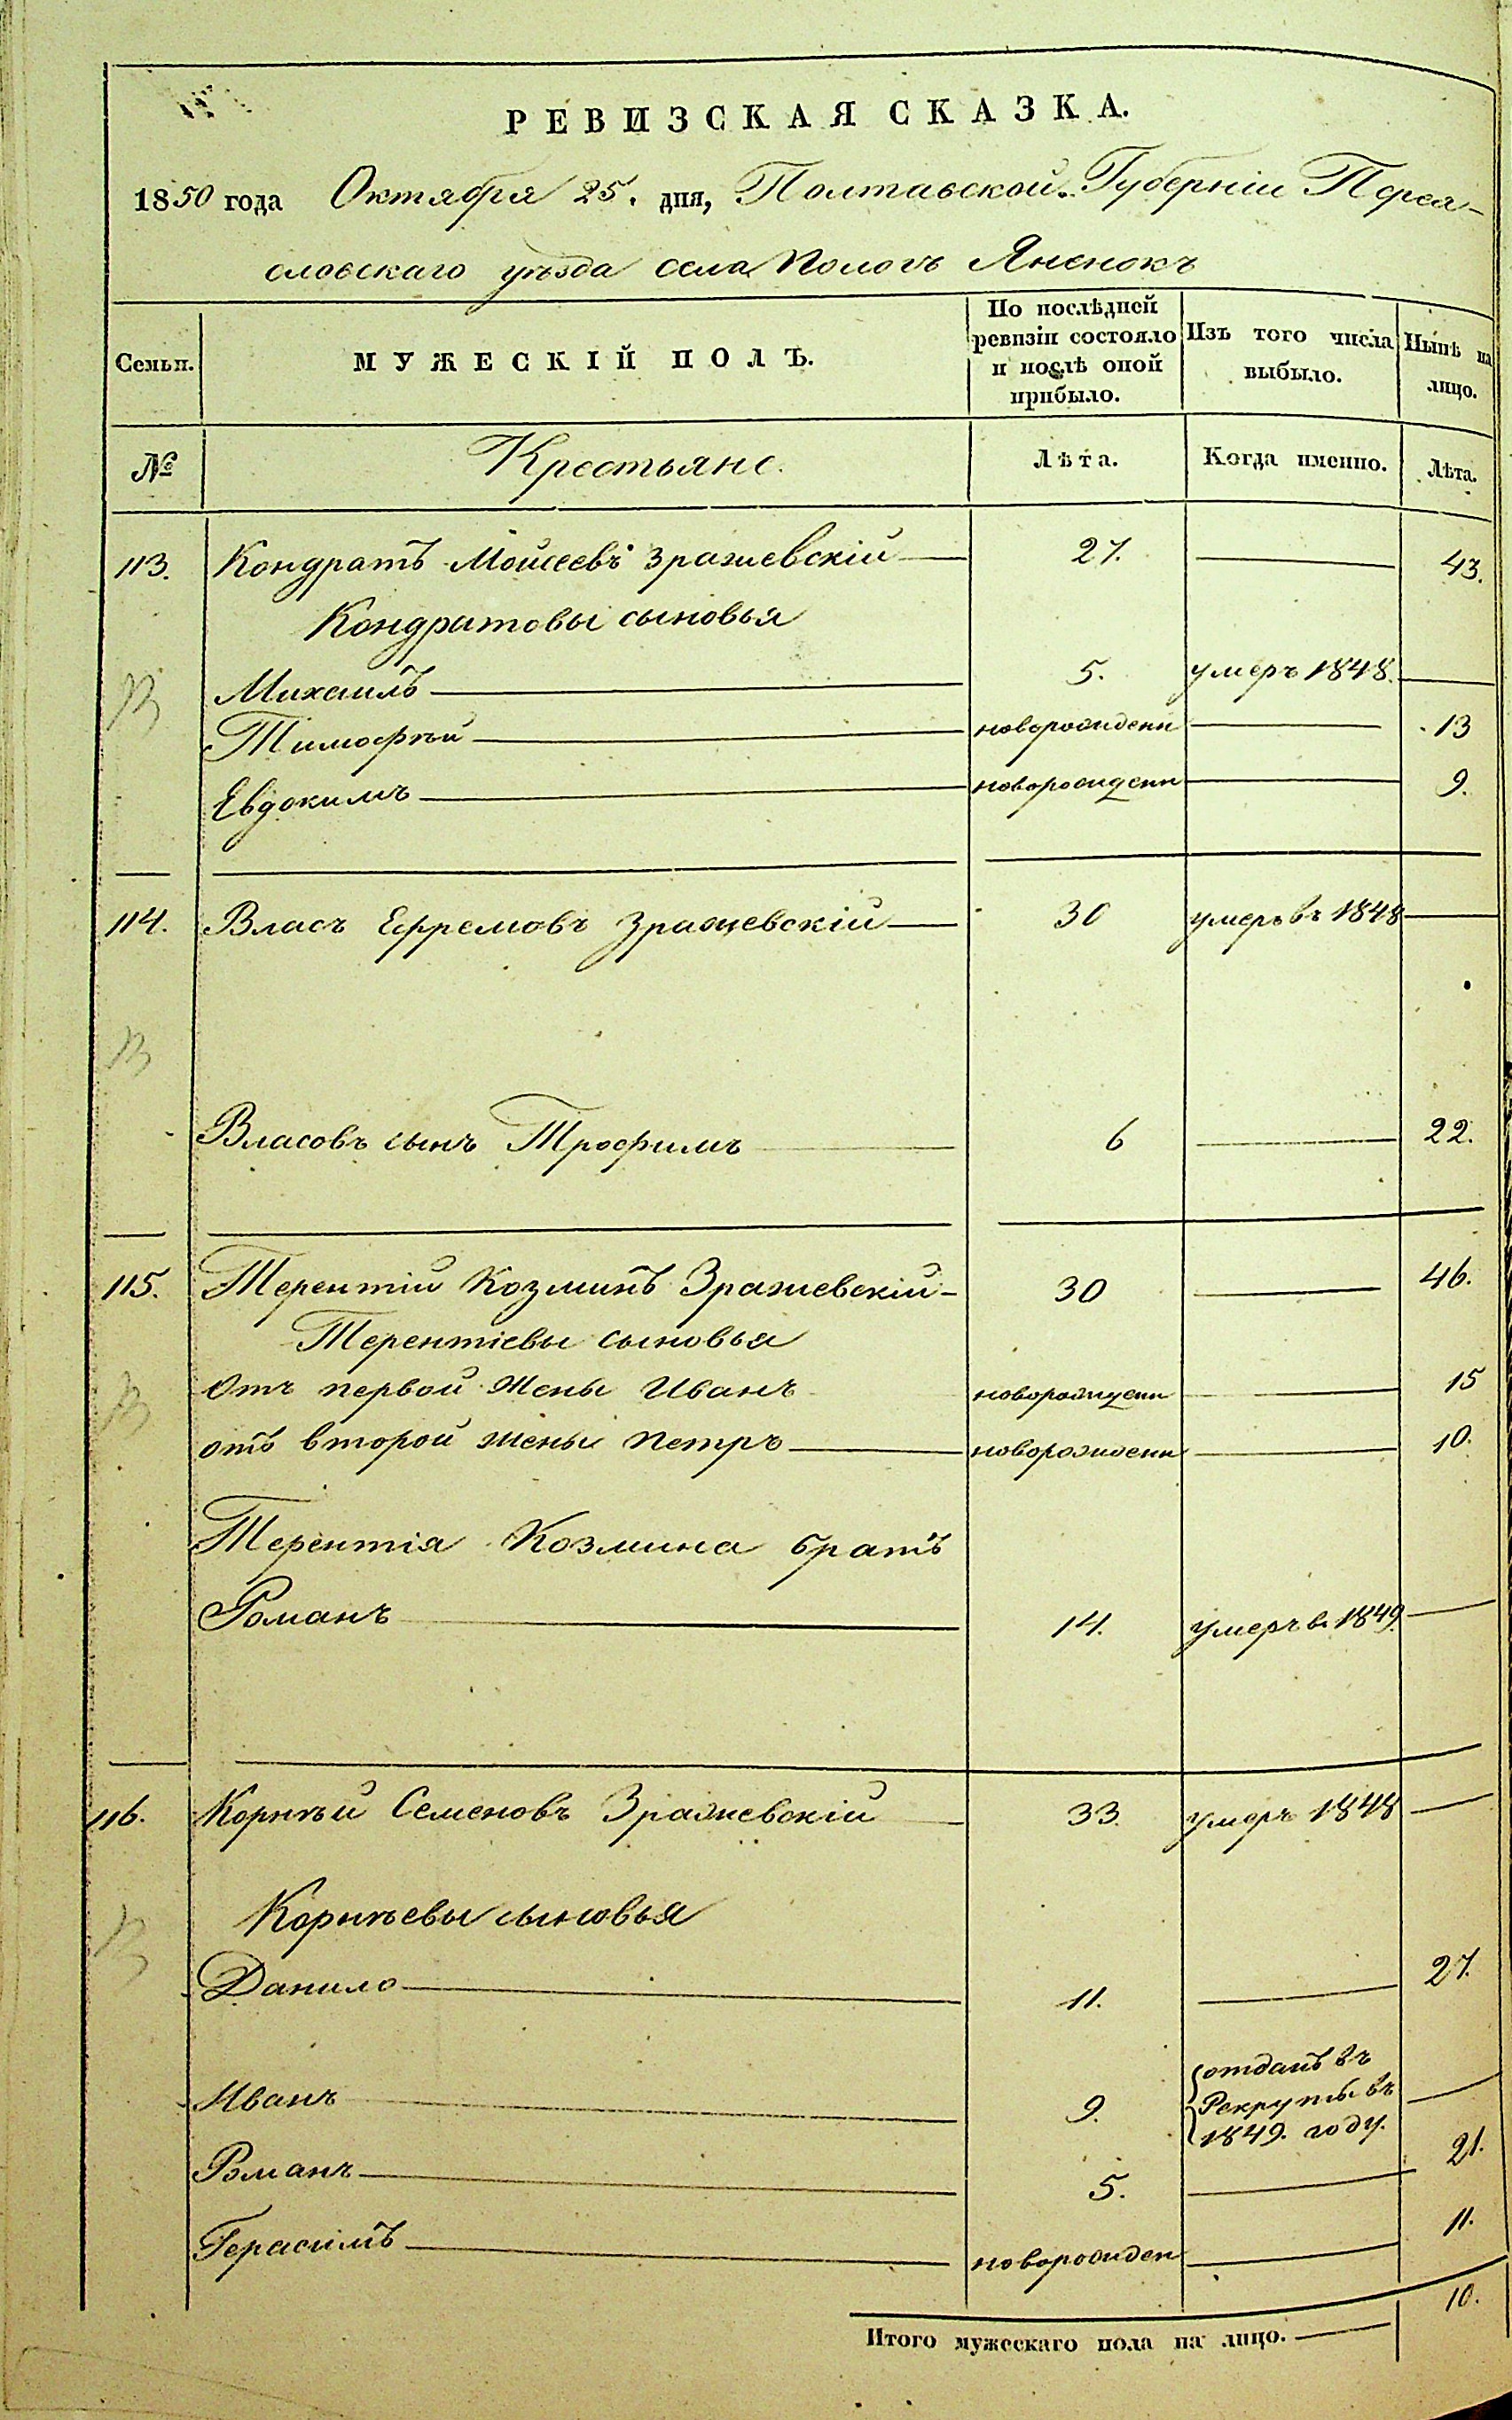 РЕВИЗСКАЯ СКАЗКА.
1850 года Октября 25. дня, Полтавской Губерніи Перея-
словскаго уѣзда села Пологъ Яненокъ
Семьи.
МУЖЕСКІЙ ПОЛЪ.
По послѣдней ревизіи состояло и послѣ оной прибыло.
Изъ того числа выбыло.
Нынѣ на лицо.
№
Крестьяне.
Лѣта.
Когда именно.
Лѣта.
113. Кондратъ Моисеевъ Зражевскій 27. 43.
Кондратовы сыновья
Михаилъ 5. умеръ 1848.
Тимофѣй новорожденн 13
Евдокимъ новорожденн 9.
114. Власъ Ефремовъ Зражевскій 30 умеръ въ 1848
Власовъ сынъ Трофимъ 6 22.
115. Терентій Козминъ Зражевскій 30 46.
Терентіевы сыновья
Отъ первой жены Иванъ новорожденн 15
отъ второй жены Петръ новорожденн 10.
Терентія Козмина братъ
Романъ 14. умеръ в. 1849.
116. Корнѣй Семеновъ Зражевскій 33. умеръ 1848
Корнѣевы сыновья
Данило 11. 27.
Иванъ 9. отданъ въ
Рекруты въ
1849. году.
Романъ 5. 21.
Герасимъ новорожден 11.
Итого мужескаго пола на лицо. 10.